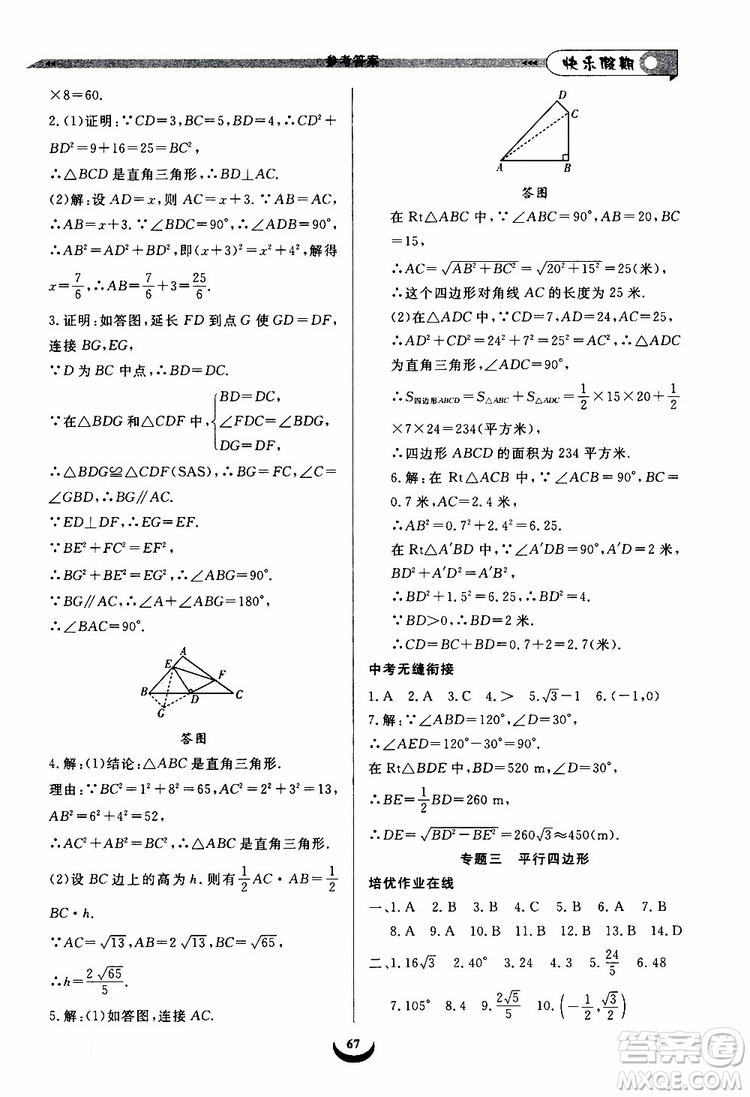 参考答案
快乐假期
×8=60.
2.(1)证明:∵CD=3,BC=5,BD=4,∴CD²+
BD²=9+16=25=BC²,
∴△BCD是直角三角形,∴BD⊥AC.
(2)解:设AD=x,则AC=x+3.∵AB=AC,
∴AB=x+3.∵∠BDC=90°,∴∠ADB=90°,
∴AB²=AD²+BD²,即(x+3)²=x²+4²,解得
x=7/6,∴AB=7/6+3=25/6.
3.证明:如答图,延长FD到点G使GD=DF,
连接BG,EG,
∵D为BC中点,∴BD=DC.
∵在△BDG和△CDF中,{BD=DC,
∠FDC=∠GDB,
DG=DF,
∴△BDG≌△CDF(SAS),∴BG=FC,∠C=
∠GBD,∴BG∥AC.
∵ED⊥DF,∴EG=EF.
∵BE²+FC²=EF²,
∴BG²+BE²=EG²,∴∠ABG=90°.
∵BG∥AC,∴∠A+∠ABG=180°,
∴∠BAC=90°.
A
E
F
B
D
C
G
答图
4.解:(1)结论:△ABC是直角三角形.
理由:∵BC²=1²+8²=65,AC²=2²+3²=13,
AB²=6²+4²=52,
∴AC²+AB²=BC²,∴△ABC是直角三角形.
(2)设BC边上的高为h.则有1/2AC·AB=1/2
BC·h.
∵AC=√13,AB=2√13,BC=√65,
∴h=2√65/5.
5.解:(1)如答图,连接AC.
D
C
A
B
答图
在Rt△ABC中,∵∠ABC=90°,AB=20,BC
=15,
∴AC=√(AB²+BC²)=√(20²+15²)=25(米),
∴这个四边形对角线AC的长度为25米.
(2)在△ADC中,∵CD=7,AD=24,
∴AD²+CD²=24²+7²=25²=AC²,∴△ADC
为直角三角形,∠ADC=90°,
∴S四边形ABCD=S△ABC+S△ADC=1/2×15×20+1/2
×7×24=234(平方米),
∴四边形ABCD的面积为234平方米.
6.解:在Rt△ACB中,∵∠ACB=90°,BC=
0.7米,AC=2.4米,
∴AB²=0.7²+2.4²=6.25.
在Rt△A′BD中,∵∠A′DB=90°,A′D=1.5米,
BD²+A′D²=A′B²,
∴BD²+1.5²=6.25,∴BD²=4.
∵BD>0,∴BD=2米.
∴CD=BC+BD=0.7+2=2.7米.
中考无缝衔接
1.A 2.A 3.C 4.> 5.√3-1 6.(-1,0)
7.解:∵∠ABD=120°,∠D=30°,
∴∠AED=120°-30°=90°.
在Rt△BDE中,BD=520 m,∠D=30°,
∴BE=1/2BD=260 m,
∴DE=√(BD²-BE²)=260√3≈450(m).
专题三 平行四边形
培优作业在线
一、1.A 2.B 3.D 4.C 5.A 6.A 7.B
8.A 9.D 10.A 11.A 12.B 13.B 14.D
二、1.16√3 2.40° 3.16 4.9 5.24/5 6.48
7.105° 8.4 9.2√5/5 10.(-1/2,√3/2)
67
答案圈
MXQE.COM